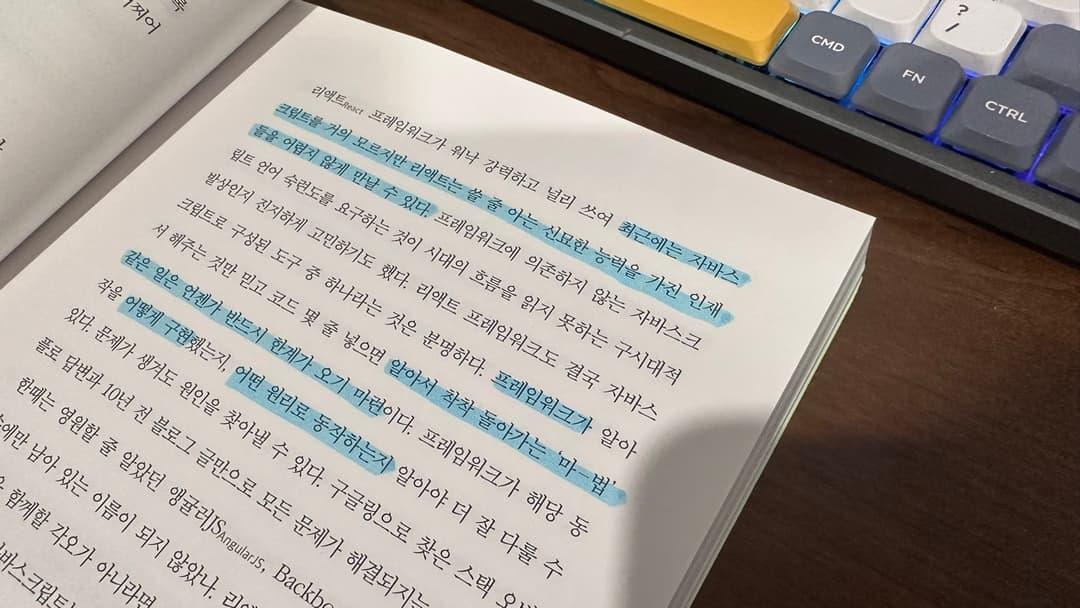 리액트React 프레임워크가 워낙 강력하고 널리 쓰여 최근에는 자바스
크립트를 거의 모르지만 리액트는 쓸 줄 아는 신묘한 능력을 가진 인재
들을 어렵지 않게 만날 수 있다. 프레임워크에 의존하지 않는 자바스크
립트 언어 숙련도를 요구하는 것이 시대의 흐름을 읽지 못하는 구시대적
발상인지 진지하게 고민하기도 했다. 리액트 프레임워크도 결국 자바스
크립트로 구성된 도구 중 하나라는 것은 분명하다. 프레임워크가 알아
서 해주는 것만 믿고 코드 몇 줄 넣으면 알아서 착착 돌아가는 ‘마—법’
같은 일은 언젠가 반드시 한계가 오기 마련이다. 프레임워크가 해당 동
작을 어떻게 구현했는지, 어떤 원리로 동작하는지 알아야 더 잘 다룰 수
있다. 문제가 생겨도 원인을 찾아낼 수 있다. 구글링으로 찾은 스택
플로 답변과, 10년 전 블로그 글만으로 모든 문제가 해결되지는
한때는 영원할 줄 알았던 앵귤러JSAngularJS,
남아 있는 이름이 되지 않았나.
함께할 각오가 아니라면
CMD
FN
CTRL
?
/